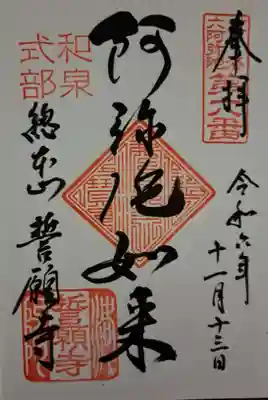 奉拝
令和六年
十一月十三日
阿弥陀如来
和泉
式部
總本山 誓願寺
誓願寺